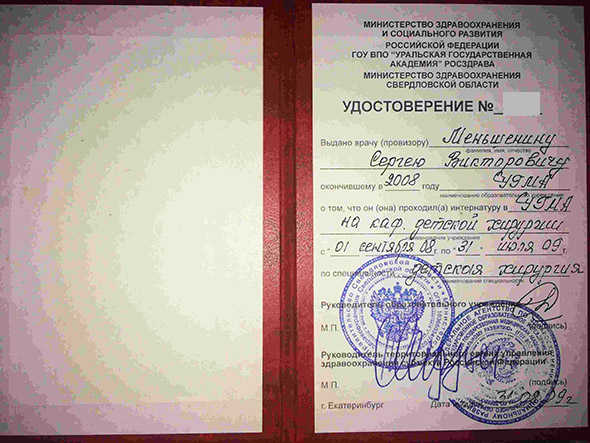 МИНИСТЕРСТВО ЗДРАВООХРАНЕНИЯ
И СОЦИАЛЬНОГО РАЗВИТИЯ
РОССИЙСКОЙ ФЕДЕРАЦИИ
ГОУ ВПО "УРАЛЬСКАЯ ГОСУДАРСТВЕННАЯ
АКАДЕМИЯ" РОСЗДРАВА
МИНИСТЕРСТВО ЗДРАВООХРАНЕНИЯ
СВЕРДЛОВСКОЙ ОБЛАСТИ
УДОСТОВЕРЕНИЕ №
Выдано врачу (провизору) Меньшенину
фамилия, имя, отчество
Сергею Викторовичу
окончившему в 2008 году СУГМА
наименование образовательного учреждения
о том, что он (она) проходил(а) интернатуру в УГМА
на каф. детской хирургии
наименование учреждения
с 01 сентября 08 г. по 31 июля 09 г.
по специальности детская хирургия
наименование специальности
Руководитель образовательного учреждения
М.П. (подпись)
Руководитель территориального органа управления
здравоохранения субъекта Российской Федерации
М.П. (подпись)
г. Екатеринбург Дата 31.08.09г